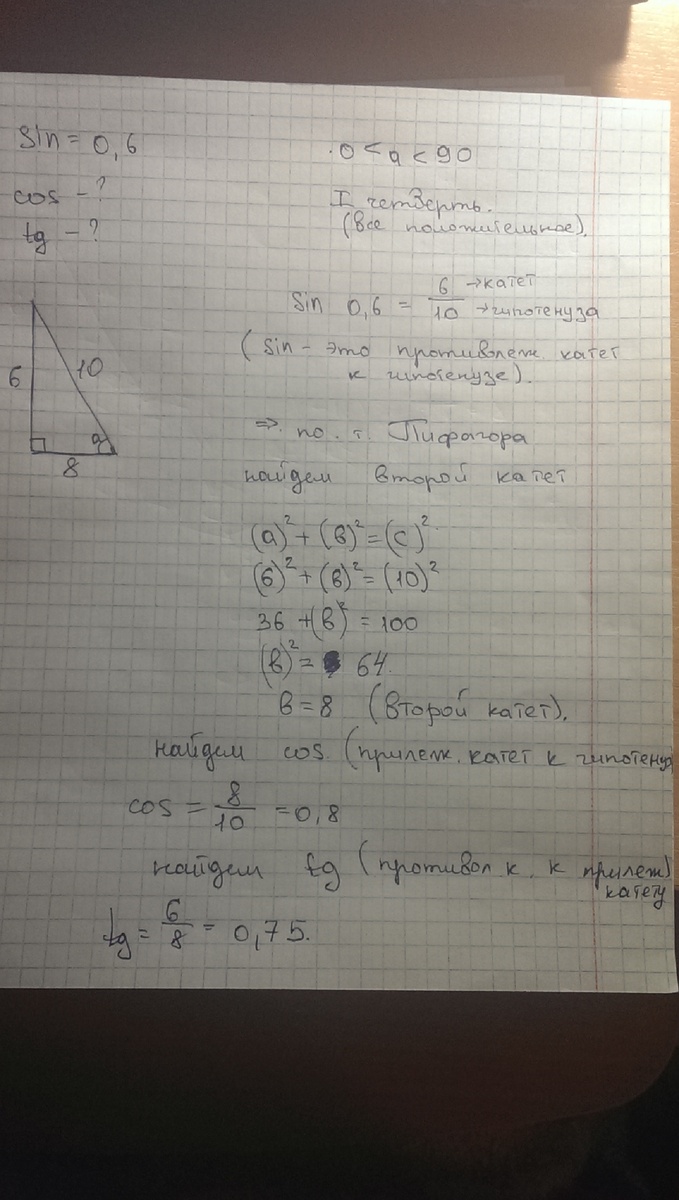 sin = 0,6
0 < a < 90
cos - ?
I четверть.
(все положительное).
tg - ?
sin 0,6 = 6/10 →катет →гипотенуза
(sin - это противолеж. катет
к гипотенузе).
6
10
a
8
⇒ по. т. Пифагора
найдем второй катет
(a)² + (в)² = (c)²
(6)² + (в)² = (10)²
36 + (в)² = 100
(в)² = 64.
в = 8 (второй катет).
найдем cos. (прилеж. катет к гипотенузе
cos = 8/10 = 0,8
найдем tg (противол к. к прилеж)
катету
tg = 6/8 = 0,75.